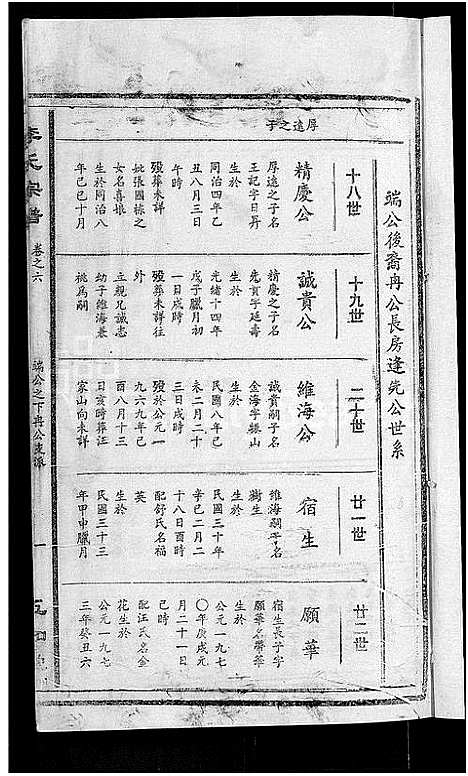 端公後裔冉公長房逢先公世系
十八世
厚遠之子
精慶公
厚遠之子名
王記字日昇
生於
同治四年乙
丑八月三日
午時
歿葬未詳
妣張國棟之
女名喜娘
生於同治八
年己巳十月
十九世
誠貴公
精慶之子名
先貢字延壽
生於
光緒十四年
戊子臘月初
一日戌時
歿葬未詳往
外
立親兄誠志
幼子維海兼
祧為嗣
二十世
維海公
誠貴嗣子名
金海字振山
生於
民國八年己
未二月二十
三日戌時
歿於公元一
九六九年己
酉八月十三
日亥時葬江
家山向未詳
廿一世
宿生
維海嗣子名
樹生
生於
民國三十年
辛巳二月二
十八日酉時
配舒氏名福
英
生於
民國三十三
年甲申臘月
廿二世
願華
宿生長子字
願華名響華
生於
公元一九七
〇年庚戌元
月二十一日
巳時
配汪氏名金
花生於
公元一九七
三年癸丑六
李氏宗譜
卷之六
端公之下冉公支派
一